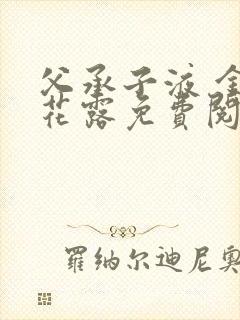 父承子液 金
花露免费阅
羅纳尔迪尼奥